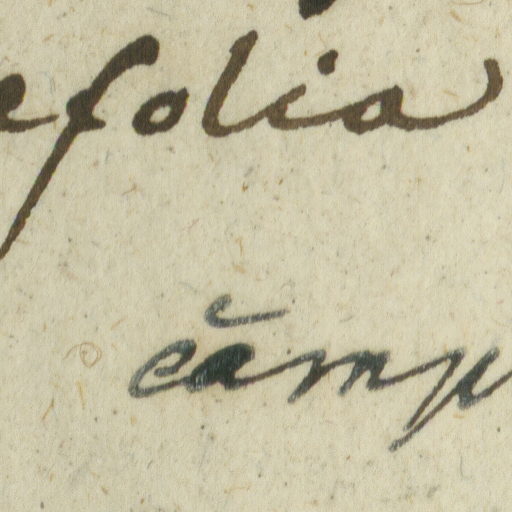 efolia
cămp